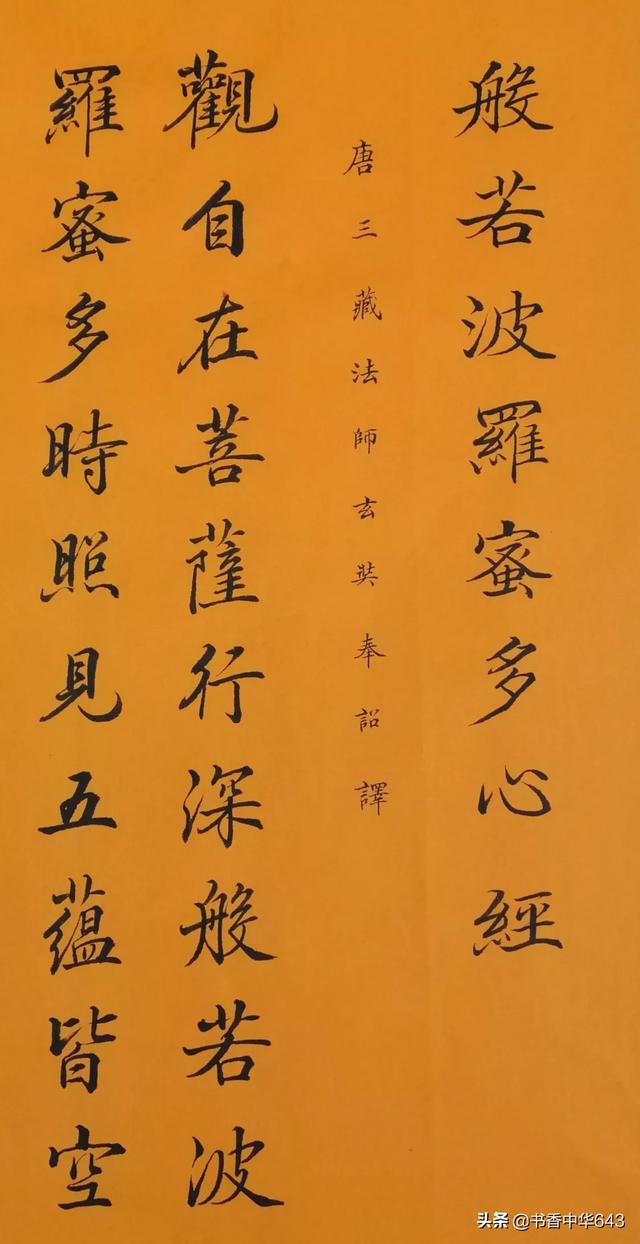 般若波羅蜜多心經
唐三藏法師玄奘奉詔譯
觀自在菩薩行深般若波
羅蜜多時照見五蘊皆空
头条 @书香中华643